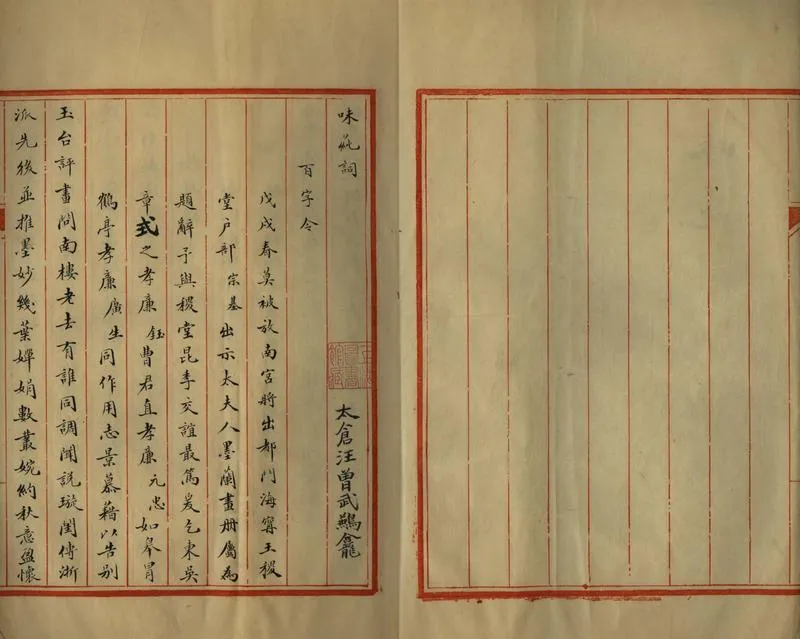 味蒓詞
太倉汪曾武鷀龕
百字令
戊戌春莫被放南宮將出都門海寧王稷
堂戶部宗基出示太夫人墨蘭畫册屬為
題辭予與稷堂昆季交誼最篤爰乞東吳
章式之孝廉鈺曹君直孝廉元忠如皋冒
鶴亭孝廉廣生同作用志景慕藉以告别
玉台評畫問南樓老去有誰同調聞說璇閨傳浙
派先後並推墨妙幾葉嬋娟數叢婉約秋意盈懷